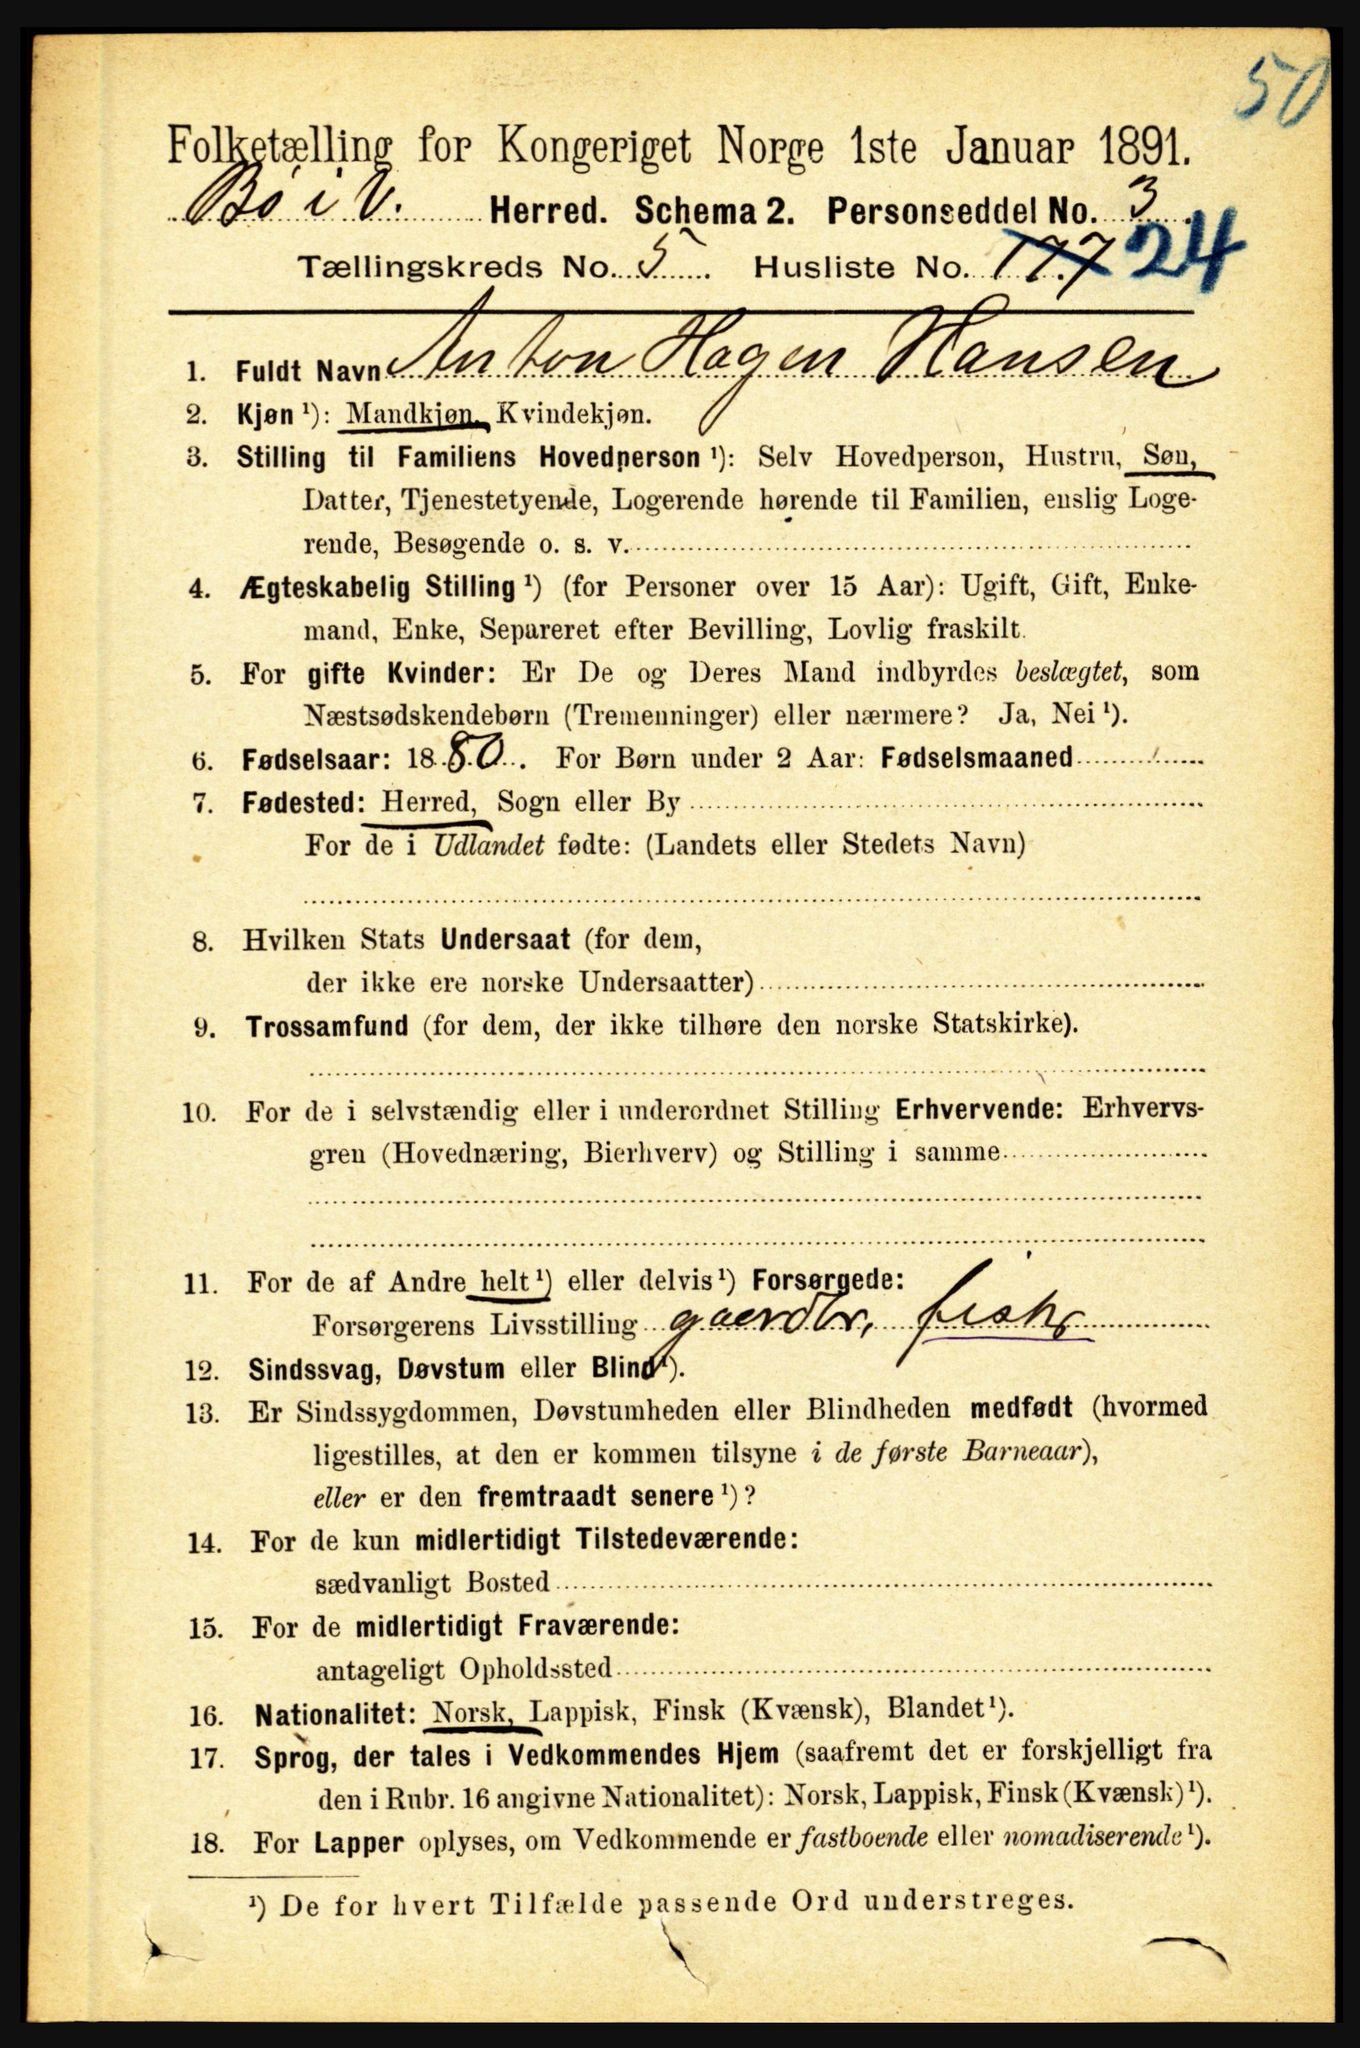 50
Folketælling for Kongeriget Norge 1ste Januar 1891.
Bö i V. Herred. Schema 2. Personseddel No. 3.
Tællingskreds No. 5. Husliste No. 177 24
1. Fuldt Navn Anton Hagen Hansen
2. Kjøn ¹): Mandkjøn, Kvindekjøn.
3. Stilling til Familiens Hovedperson ¹): Selv Hovedperson, Hustru, Søn,
Datter, Tjenestetyende, Logerende hørende til Familien, enslig Loge-
rende, Besøgende o. s. v.
4. Ægteskabelig Stilling ¹) (for Personer over 15 Aar): Ugift, Gift, Enke-
mand, Enke, Separeret efter Bevilling, Lovlig fraskilt.
5. For gifte Kvinder: Er De og Deres Mand indbyrdes beslægtet, som
Næstsødskendebørn (Tremenninger) eller nærmere? Ja, Nei ¹).
6. Fødselsaar: 1880. For Børn under 2 Aar: Fødselsmaaned
7. Fødested: Herred, Sogn eller By
For de i Udlandet fødte: (Landets eller Stedets Navn)
8. Hvilken Stats Undersaat (for dem,
der ikke ere norske Undersaatter)
9. Trossamfund (for dem, der ikke tilhøre den norske Statskirke).
10. For de i selvstændig eller i underordnet Stilling Erhvervende: Erhvervs-
gren (Hovednæring, Bierhverv) og Stilling i samme
11. For de af Andre helt ¹) eller delvis ¹) Forsørgede:
Forsørgerens Livsstilling gaardbr, fisker
12. Sindssvag, Døvstum eller Blind ¹).
13. Er Sindssygdommen, Døvstumheden eller Blindheden medfødt (hvormed
ligestilles, at den er kommen tilsyne i de første Barneaar),
eller er den fremtraadt senere ¹)?
14. For de kun midlertidigt Tilstedeværende:
sædvanligt Bosted
15. For de midlertidigt Fraværende:
antageligt Opholdssted
16. Nationalitet: Norsk, Lappisk, Finsk (Kvænsk), Blandet ¹).
17. Sprog, der tales i Vedkommendes Hjem (saafremt det er forskjelligt fra
den i Rubr. 16 angivne Nationalitet): Norsk, Lappisk, Finsk (Kvænsk) ¹).
18. For Lapper oplyses, om Vedkommende er fastboende eller nomadiserende ¹).
¹) De for hvert Tilfælde passende Ord understreges.